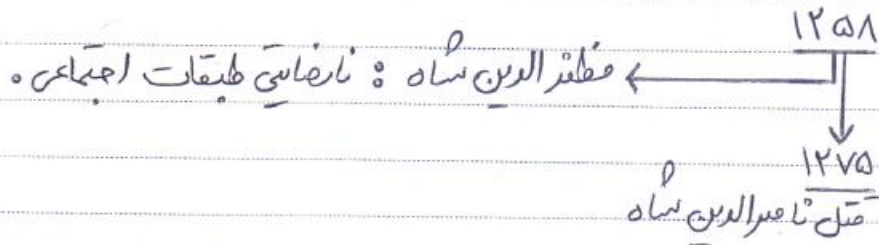 ۱۲۵۸
مظفرالدین شاه : نارضایتی طبقات اجتماعی .
۱۲۷۵
قتل ناصرالدین شاه